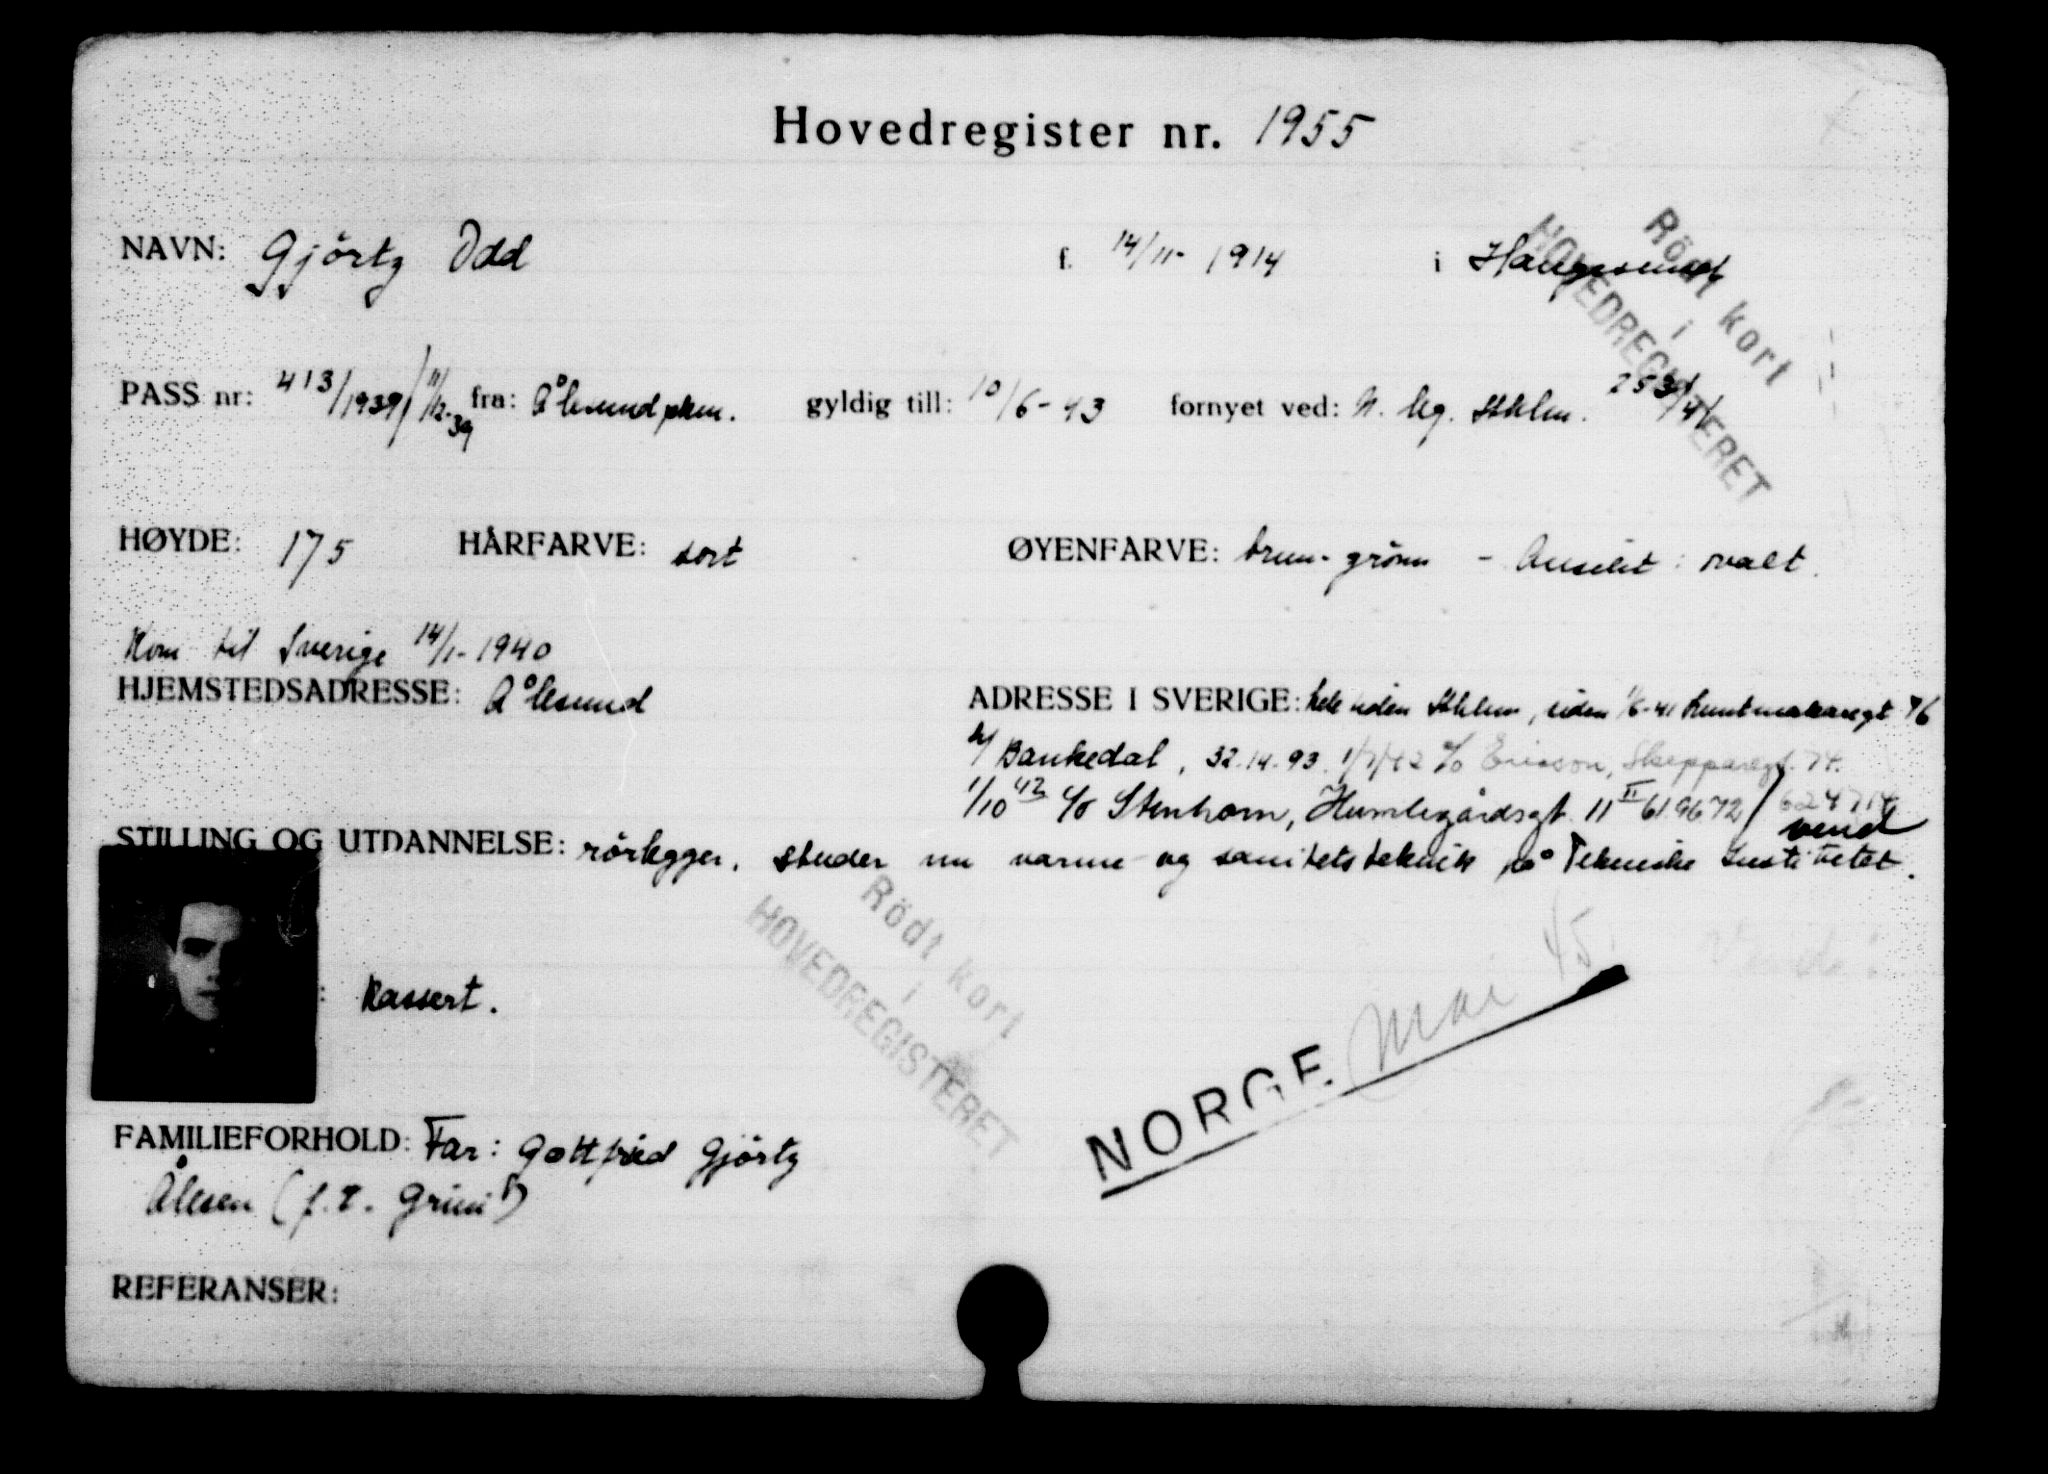 Hovedregister nr. 1955
NAVN: Gjörtz Odd f. 14/11- 1914 i Haugesund
Rödt kort
i
HOVEDREGISTERET
PASS nr: 413/1939 / 11/12-39 fra: Ålesund pkm. gyldig till: 10/6-43 fornyet ved: N. leg. Sthlm. 2539/41
HØYDE: 175 HÅRFARVE: sort ØYENFARVE: brun-grönn - Ansikt: ovalt.
Kom til Sverige 14/1-1940
HJEMSTEDSADRESSE: Ålesund ADRESSE I SVERIGE: hele tiden Sthlm, siden 1/6-41 Runtmakaregt 76
h/ Bankedal, 32.14.93. 1/7/42 c/o Ericson, Skepparegt. 74.
1/10 42 c/o Stenhorn, Humlegårdsgt. 11 II 619672 / 624714
vend
STILLING OG UTDANNELSE: rörlegger. studer nu varme- og sanitetsteknik på Tekniske Institutet.
: Kassert.
Rödt kort
i
HOVEDREGISTERET
NORGE. Mai 45.
FAMILIEFORHOLD: Far: Gottfried Gjörtz
Ålesun (f.t. Grini)
REFERANSER: